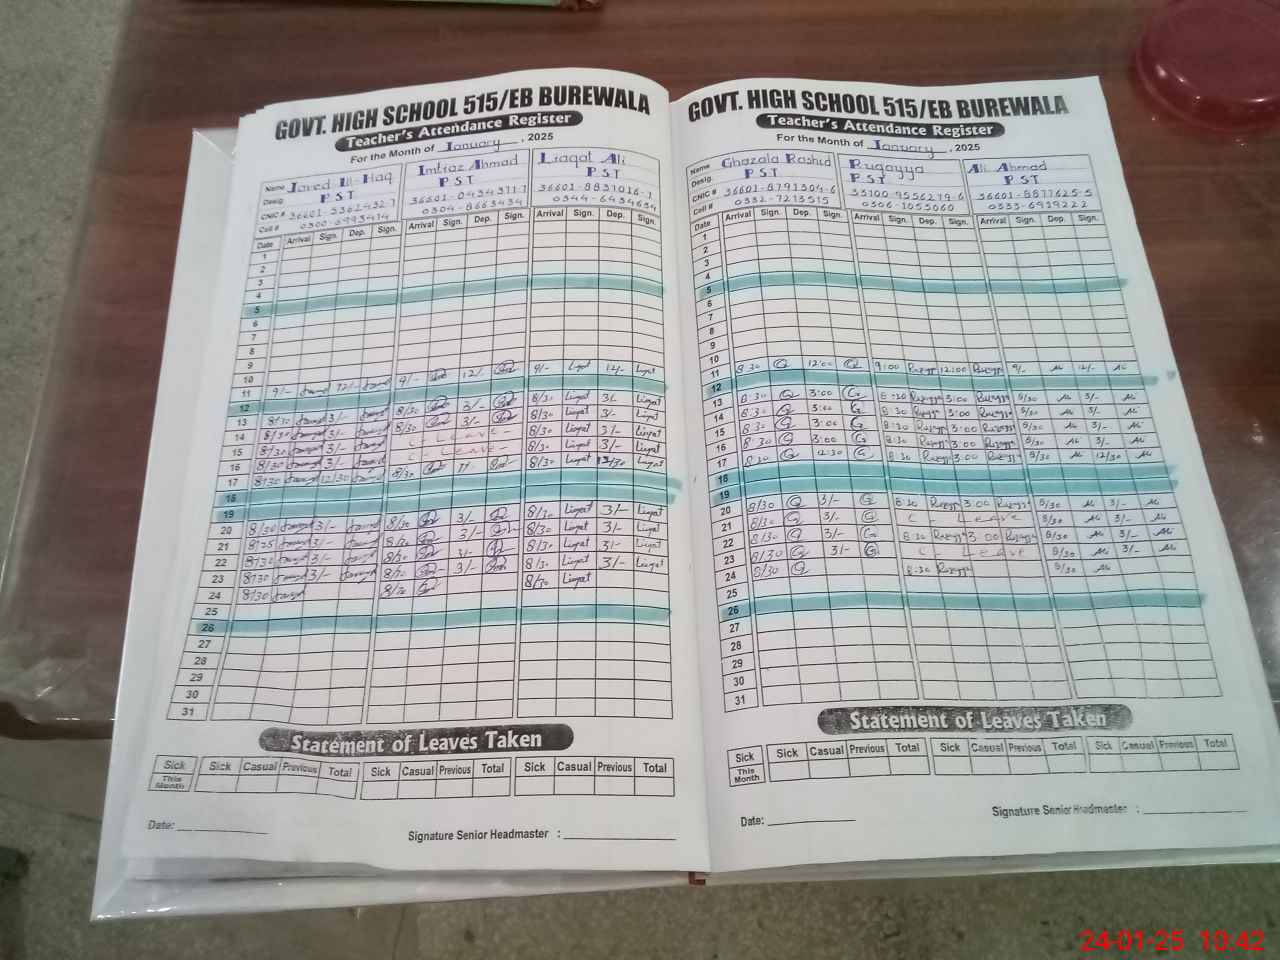 GOVT. HIGH SCHOOL 515/EB BUREWALA
Teacher's Attendance Register
For the Month of January, 2025
Name Javed Ul-Haq Imtiaz Ahmad Liaqat Ali
Desig. PST PST PST
CNIC # 36601-8837016-7
Cell # 0300-6993414 0304-8663434 0344-6434634
Date Arrival Sign. Dep. Sign. Arrival Sign. Dep. Sign. Arrival Sign. Dep. Sign.
1
2
3
4
5
6
7
8
9
10
11 9/- 12/- 9/- 12/- 9/- Liaqat 12/- Liaqat
12
13 8/30 3/- 8/30 3/- 8/30 Liaqat 3/- Liaqat
14 8/30 3/- 8/30 3/- 8/30 Liaqat 3/- Liaqat
15 8/30 3/- C - Leave - 8/30 Liaqat 3/- Liaqat
16 8/30 3/- C - Leave - 8/30 Liaqat 3/- Liaqat
17 8/30 12/30 8/30 8/30 Liaqat 12/30 Liaqat
18
19
20 8/30 3/- 8/30 3/- 8/30 Liaqat 3/- Liaqat
21 8/25 3/- 8/30 3/- 8/30 Liaqat 3/- Liaqat
22 8/30 3/- 8/30 3/- 8/30 Liaqat 3/- Liaqat
23 8/30 3/- 3/- 8/30 Liaqat 3/- Liaqat
24 8/30 8/30 Liaqat
25
26
27
28
29
30
31
Statement of Leaves Taken
Sick Sick Casual Previous Total Sick Casual Previous Total Sick Casual Previous Total
This Month
Date:
Signature Senior Headmaster :
GOVT. HIGH SCHOOL 515/EB BUREWALA
Teacher's Attendance Register
For the Month of January, 2025
Name Ghazala Rashid Ruqayya Ali Ahmad
Desig. PST PST PST
CNIC # 36601-8791304-6 36601-8877625-5
Cell # 0332-7213515 0306-1055060 0333-6919222
Date Arrival Sign. Dep. Sign. Arrival Sign. Dep. Sign. Arrival Sign. Dep. Sign.
1
2
3
4
5
6
7
8
9
10
11 8:30 G 12:00 G 9:00 12:00 9/- Ali 12/- Ali
12
13 8:30 G 3:00 G 8:30 3:00 8/30 Ali 3/- Ali
14 8:30 G 3:00 G 8:30 3:00 8/30 Ali 3/- Ali
15 8:30 G 3:00 G 8:30 3:00 8/30 Ali 3/- Ali
16 8:30 G 3:00 G 8:30 3:00 8/30 Ali 3/- Ali
17 8:30 G 12:30 G 8:30 3:00 8/30 Ali 12/30 Ali
18
19
20 8/30 G 3/- G 8:30 3:00 8/30 Ali 3/- Ali
21 8/30 G 3/- G C - Leave 8/30 Ali 3/- Ali
22 8/30 G 3/- G 8:30 3:00 8/30 Ali 3/- Ali
23 8/30 G 3/- G C - Leave 8/30 Ali 3/- Ali
24 8/30 G 8:30 8/30 Ali
25
26
27
28
29
30
31
Statement of Leaves Taken
Sick Sick Casual Previous Total Sick Casual Previous Total Sick Casual Previous Total
This Month
Date:
Signature Senior Headmaster :
24-01-25 10:42